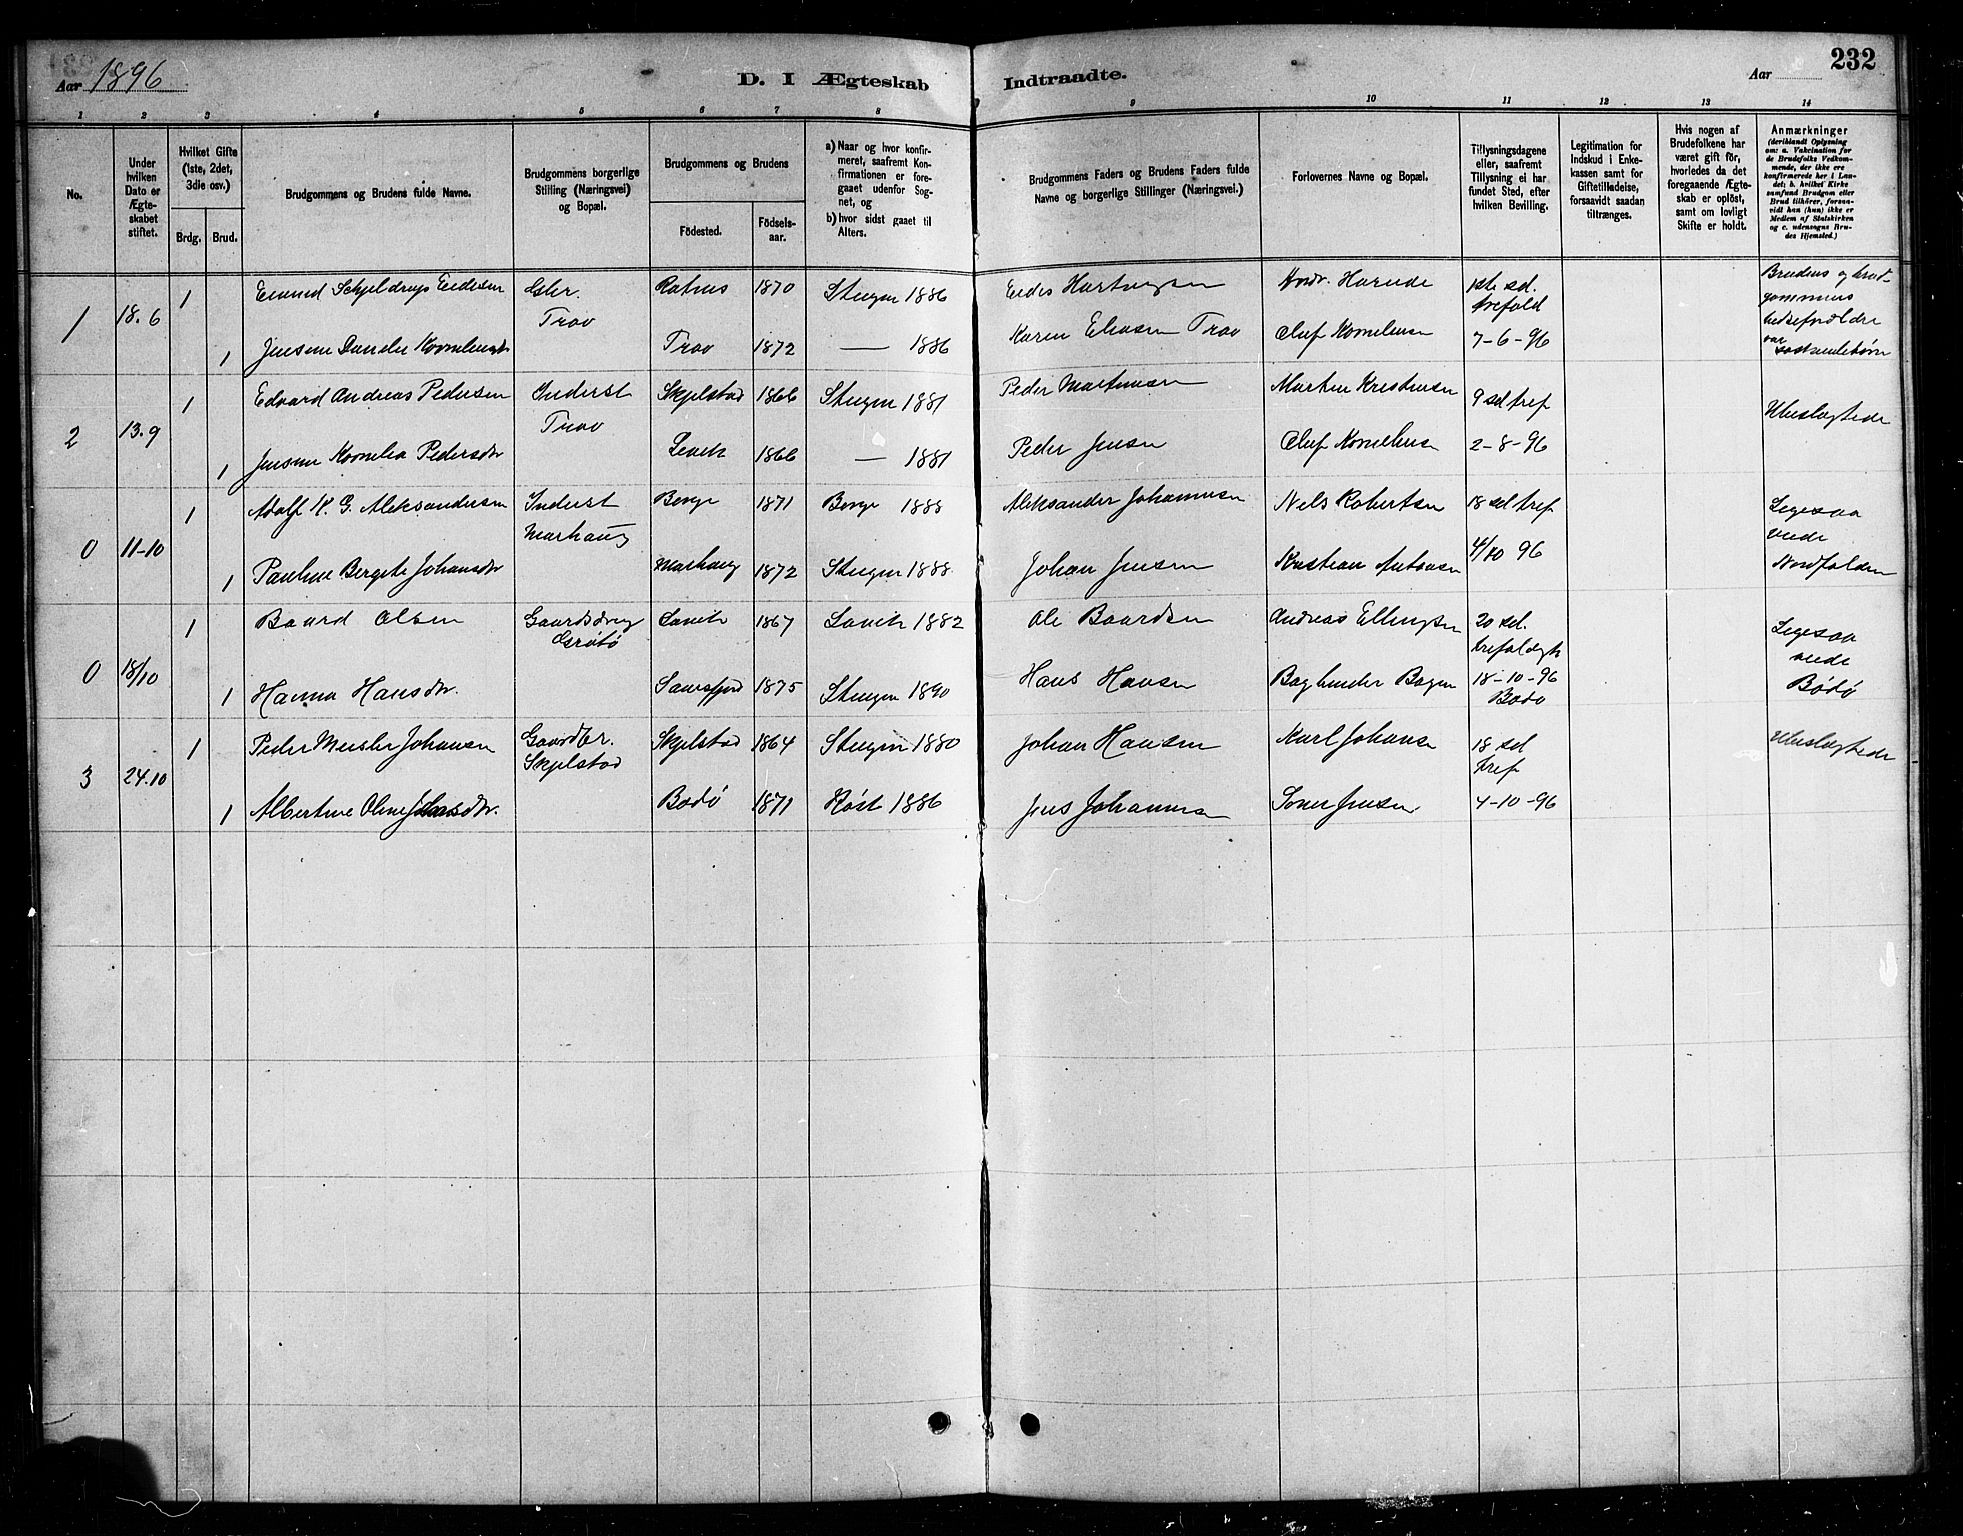 Aar 1896
D. I Ægteskab Indtraadte.
Aar
232
1 2 3 4 5 6 7 8 9 10 11 12 13 14
No.
Under hvilken Dato er Ægteskabet stiftet.
Hvilket Gifte (1ste, 2det, 3die osv.)
Brdg. Brud.
Brudgommens og Brudens fulde Navne.
Brudgommens borgerlige Stilling (Næringsvei) og Bopæl.
Brudgommens og Brudens
Födested.
Födselsaar.
a) Naar og hvor konfirmeret, saafremt Konfirmationen er foregaaet udenfor Sognet, og
b) hvor sidst gaaet til Alters.
Brudgommens Faders og Brudens Faders fulde Navne og borgerlige Stillinger (Næringsvei.)
Forlovernes Navne og Bopæl.
Tillysningsdagene eller, saafremt Tillysning ei har fundet Sted, efter hvilken Bevilling.
Legitimation for Indskud i Enkekassen samt for Giftetilladelse, forsaavidt saadan tiltrænges.
Hvis nogen af Brudefolkene har været gift för, hvorledes da det foregaaende Ægteskab er oplöst, samt om lovligt Skifte er holdt.
Anmærkninger (deriblandt Oplysning om: a. Vakcination for de Brudefolks Vedkommende, der ikke ere konfirmerede her i Landet; b. hvilket Kirkesamfund Brudgom eller Brud tilhörer, forsaavidt han (hun) ikke er Medlem af Statskirken og c. udensogns Brudes Hjemsted.)
1 18.6 1 Schjeldrup 1870 Steigen 1886 Hartvigsen 1ste sd. trefold
Trav
1 Trav 1872 — 1886 Karen Eliasen Trav Oluf Kornelius 7-6-96
Brudens og brudgommens
var
2 13.9 1 Edvard Andreas Pedersen Inderst Skjelstad 1866 Steigen 1881 Peder Martinsen Martin Kristensen 9 sd tref
Trav
1 Kornelia Pedersdtr 1866 — 1881 Peder Jensen Oluf Kornelius 2-8-96
Ubeslægtede
0 11-10 1 Adolf K. G. Aleksandersen Inderst Borge 1871 Borge 1888 Aleksander Johannesen Nels Robertsen 18 sd tref
Marhaug
1 Pauline Bergete Johansdtr Marhaug 1872 Steigen 1888 Johan Jensen Kristian Antonsen 4/10 96
Ligesaa
viede
Nordfolden
0 18/10 1 Baard Olsen Gaardsdreng Lavik 1867 Lavik 1882 Ole Baardsen Andreas Ellingsen 20 sd.
Grötö trefoldigh
1 Hanna Hansdtr. 1875 Steigen 1890 Hans Hansen 18-10-96
Bodø
Ligesaa
viede
Bödö
3 24.10 1 Peder Meisler Johansen Gaardbr. Skjelstad 1864 Steigen 1880 Johan Hansen Karl Johans 18 sd
Skjelstad tref
1 Albertine Oline Bodö 1871 Röst 1886 Jens Johannes 4-10-96
Ubeslægtede